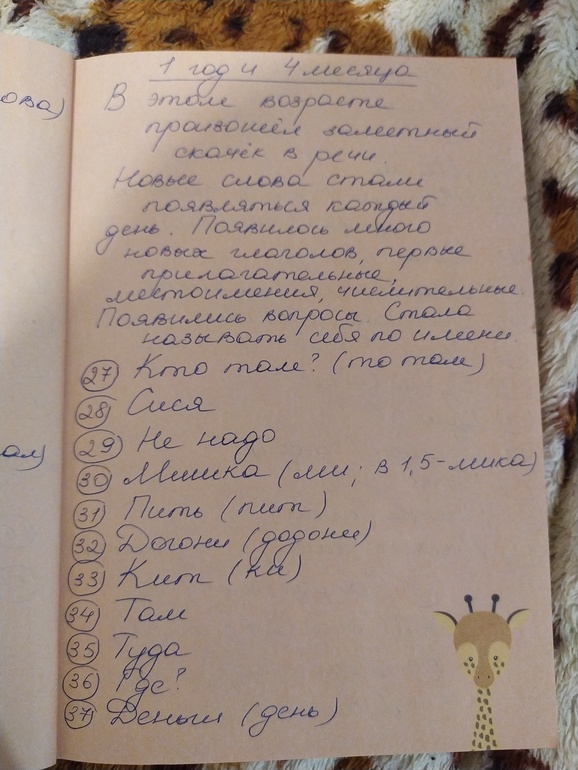 ова)
ам)
1 год и 4 месяца
В этом возрасте
произошёл заметный
скачёк в речи.
Новые слова стали
появляться каждый
день. Появилось много
новых глаголов, первые
прилагательные,
местоимения, числительные.
Появились вопросы. Стала
называть себя по имени.
27 Кто там? (то там)
28 Сися
29 Не надо
30 Мишка (ми; в 1,5-мика)
31 Пить (пит)
32 Догони (додони)
33 Кит (ки)
34 Там
35 Туда
36 Где?
37 Деньги (день)